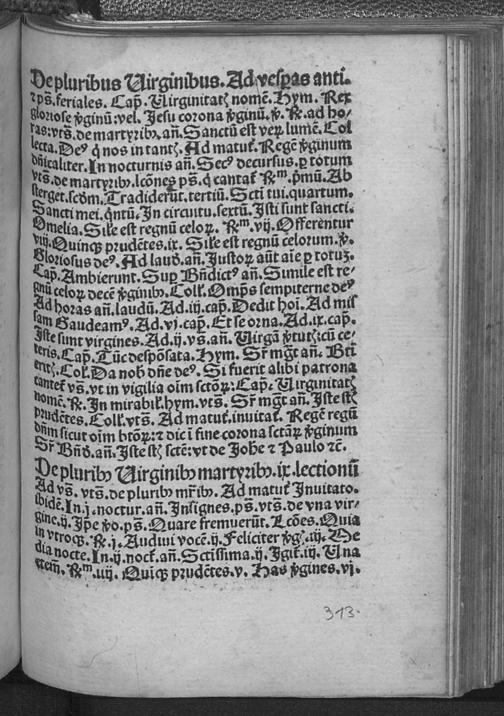 De pluribus Uirginibus. Ad vesp̱as anti.
⁊ p̄s. feriales. Cap̄. Uirginitatꝫ nomē. Hym. Rex
gloriose v̄ginū: vel. Jesu corona v̄ginū. v̄. R̄. ad ho/
ras: vts̄. de martyribꝰ. an̄. Sanctū est veꝝ lumē. Col
lecta. Deꝰ q̇ nos in tantꝭ. Ad matut̄. Regē v̄ginum
dn̄icaliter. In nocturnis an̄. Secꝰ decursus. ꝑ totum
vts̄. de martyribꝰ. lcōnes p̄s. q̇ cantat̄ R̄ᵐ. p̄mū. Ab
sterget. scd̄m. Tradiderūt. tertiū. Scti tui. quartum.
Sancti mei. q̇ntū. In circuitu. sextū. Isti sunt sancti.
Omelia. Sil̄e est regnū celoꝝ. R̄ᵐ. vij. Offerentur
viij. Quinqꝫ prudētes. ix. Sil̄e est regnū celorum. v̄.
Gloriosus deꝰ. Ad laud̄. an̄. Justoꝝ aūt aīe ꝑ totuꝫ.
Cap̄. Ambierunt. Suꝑ Bn̄dictꝰ an̄. Simile est re/
gnū celoꝝ decē v̄ginibꝰ. Coll̄. Omp̄s sempiterne deꝰ
Ad horas an̄. laudū. Ad. iij. cap̄. Dedit hoi. Ad mis
sam Gaudeamꝰ. Ad. vj. cap̄. Et se orna. Ad. ix. cap̄.
Iste sunt virgines. Ad. ij. vs̄. an̄. Uirgā v̄tutꝭ: cū ce/
teris. Cap̄. Tūc despōsata. Hym. Sr̄ mḡt an̄. Bti
eritꝭ. Col̄. Da nob̄ dn̄e deꝰ. Si fuerit alibi patrona
cantet̄ vs̄. vt in vigilia oīm sctōꝝ: Cap̄. Uirginitatꝫ
nomē. R̄. In mirabil̄. hym. vts̄. Sr̄ mḡt an̄. Iste st̄
prudētes. Coll̄. vts̄. Ad matut̄. inuitat̄. Regē regū
dn̄m sicut oīm btōꝝ: ⁊ dic̄ i fine corona sctāꝝ v̄ginum
Sr̄ Bn̄d̄. an̄. Iste st̄ sctē: vt de Johē ⁊ Paulo ⁊c̄.
De pluribꝰ Uirginibꝰ martyribꝰ. ix. lectionū
Ad vs̄. vts̄. de pluribꝰ mr̄ibꝰ. Ad matut̄ Inuitato.
ibidē. In. j. noctur. an̄. Insignes. p̄s. vts̄. de vna vir/
gine. ij. Ip̄e v̄o. p̄s. Quare fremuerūt. Lcōes. Quia
in vtroqꝫ. R̄. j. Audiui vocē. ij. Feliciter v̄gꝭ. iij. Me
dia nocte. In. ij. noct̄. an̄. Sctissima. ij. Igit̄. iij. Una
R̄ᵐ. iiij. Quiqꝫ prudētes. v. Has v̄gines. vj.
313.